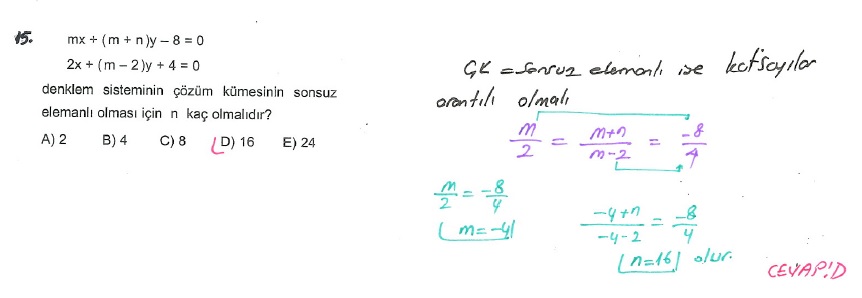 15.
mx + (m + n)y – 8 = 0
2x + (m – 2)y + 4 = 0
denklem sisteminin çözüm kümesinin sonsuz
elemanlı olması için n kaç olmalıdır?
A) 2 B) 4 C) 8 D) 16 E) 24
ÇK = Sonsuz elemanlı ise katsayılar
orantılı olmalı
m/2 = m+n/m-2 = -8/4
m/2 = -8/4
m=-4
-4+n/-4-2 = -8/4
n=16 olur.
CEVAP:D